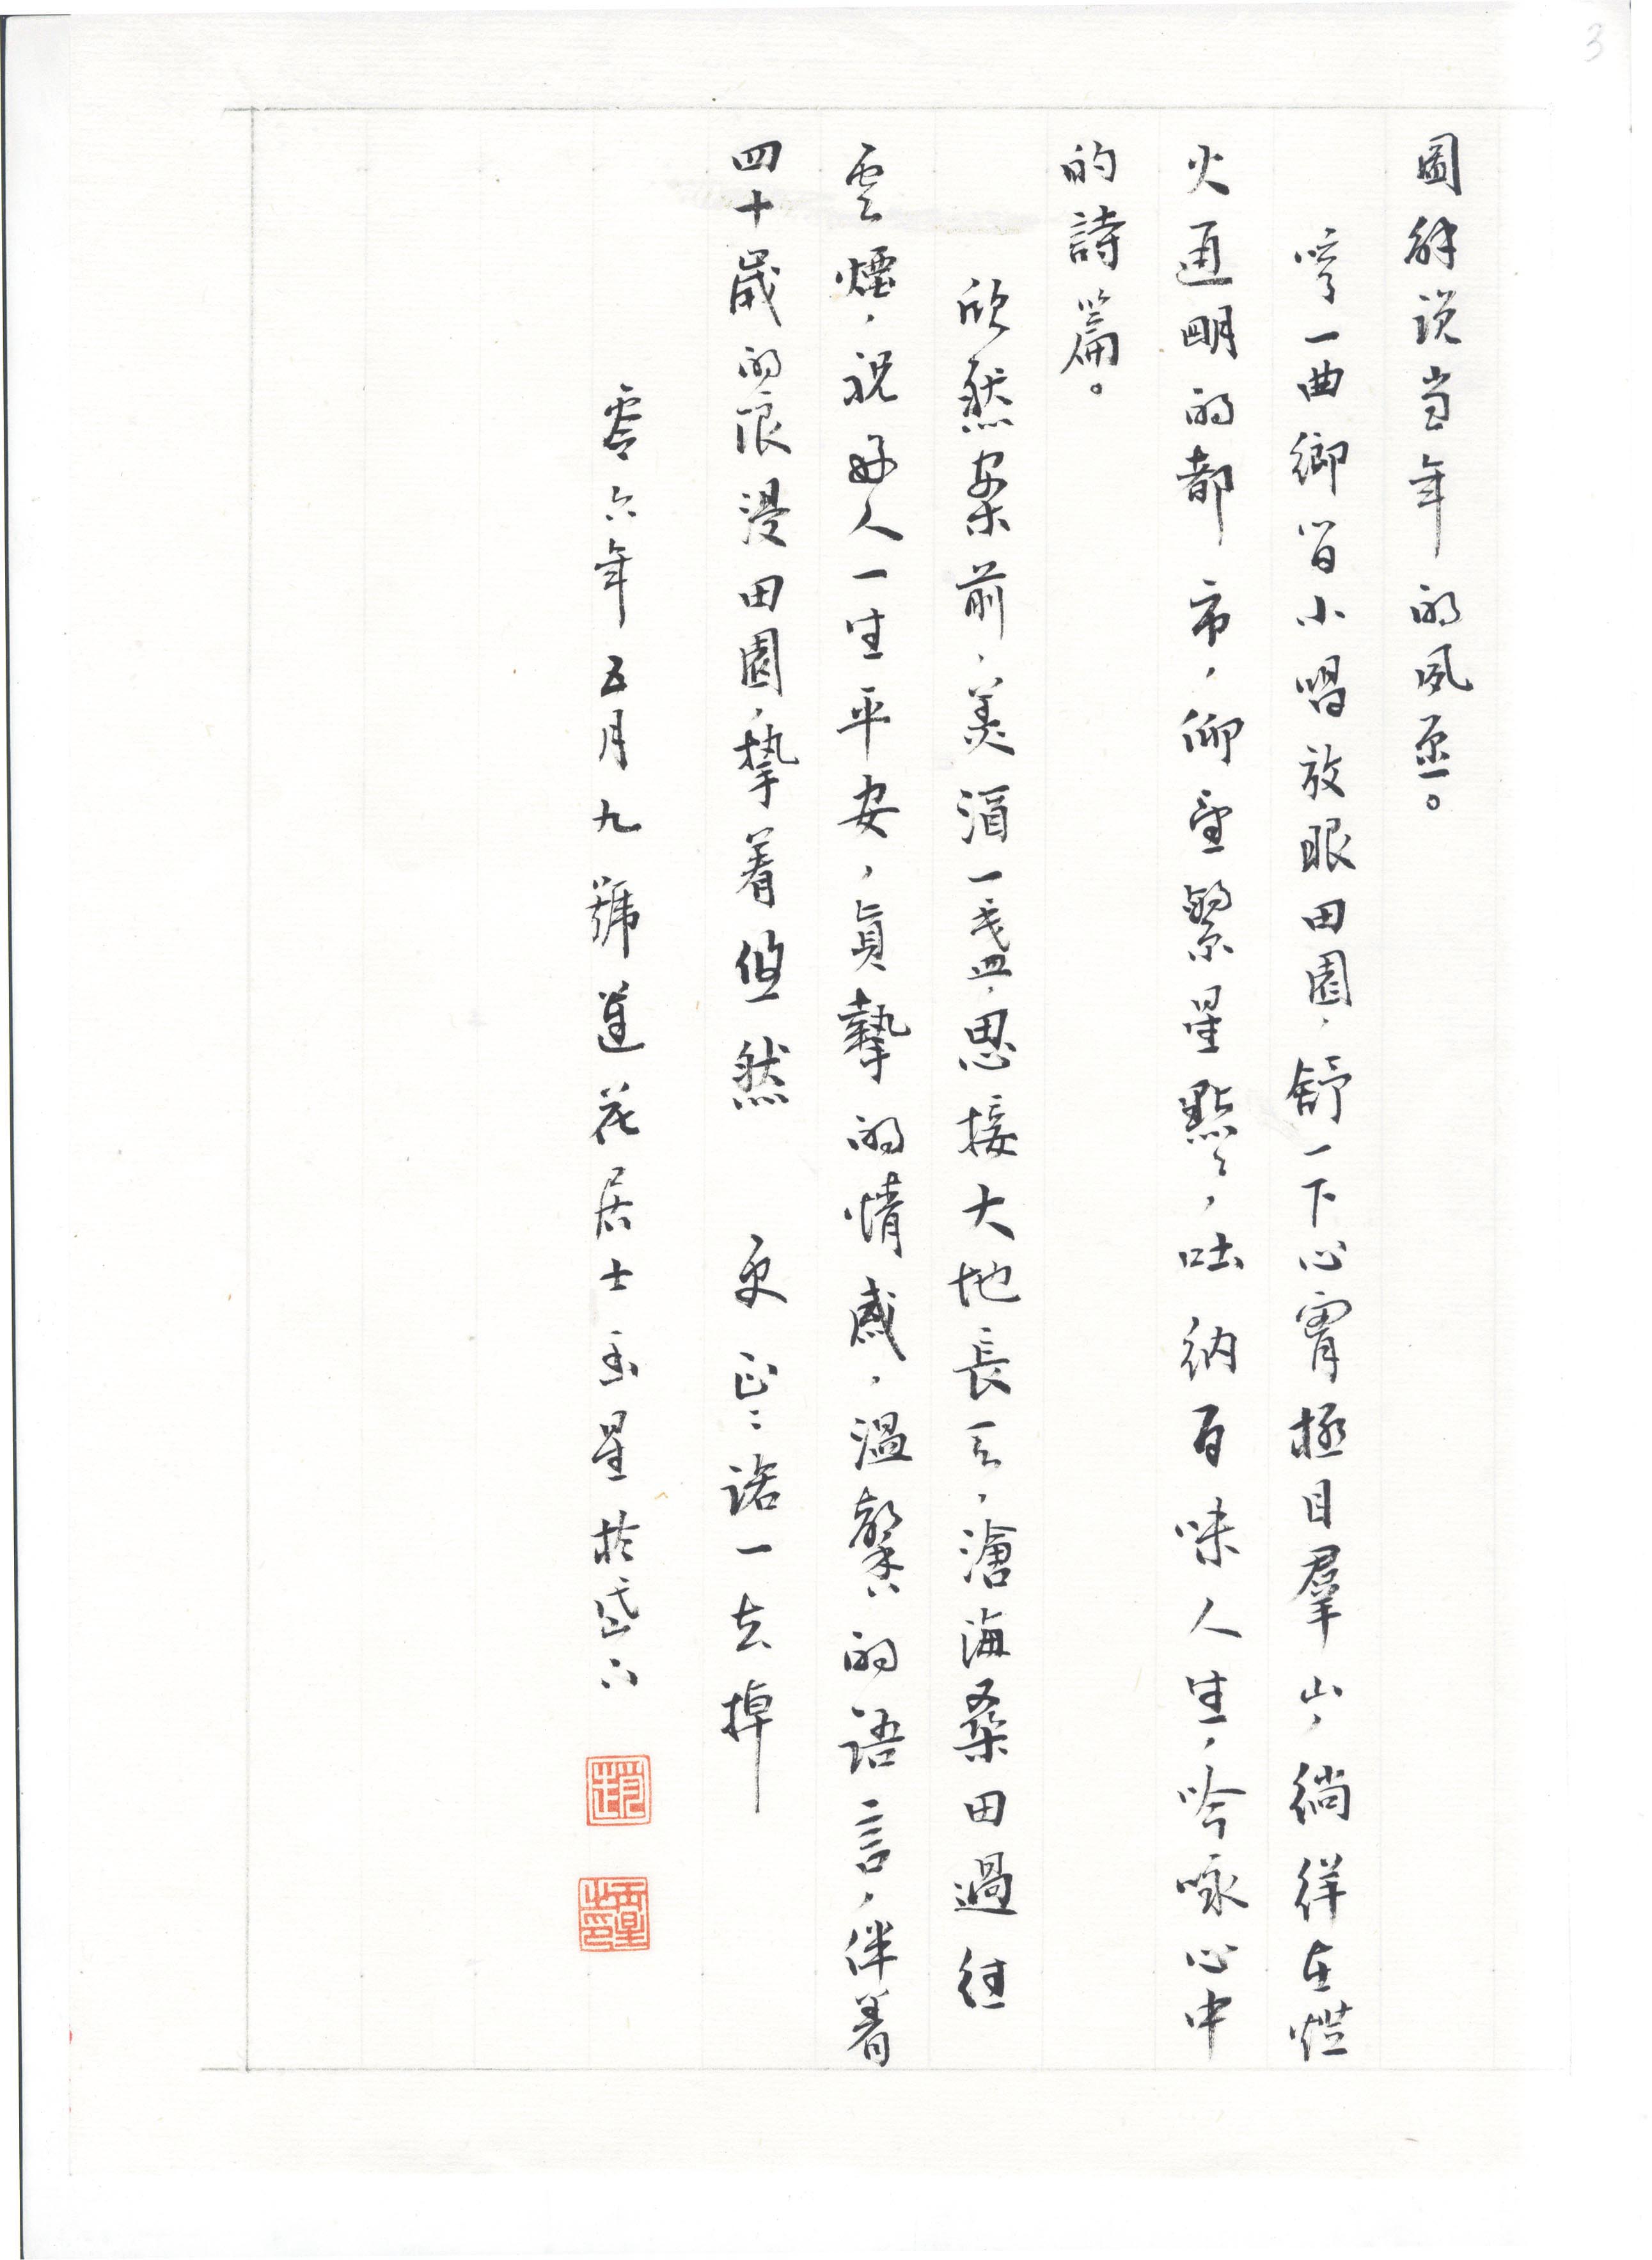 3
圖解说当年的夙愿。
哼一曲鄉間小唱放眼田園，舒一下心胷極目羣山，徜徉在燈
火通明的都市，仰望繁星點々，吐納百味人生，吟咏心中
的詩篇。
欣然案前，美酒一盞，思接大地長天，滄海桑田過往
雲煙，祝好人一生平安，真摯的情感，溫馨的语言，伴着
四十歲的浪漫田園，摯着悠然 更正：諾一去掉
零六年五月九號蓮花居士玉星於岱下